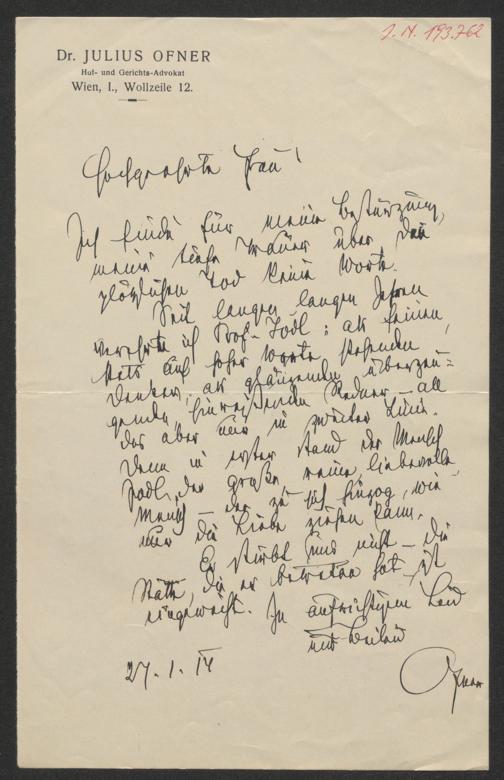 I. N. 193.762
Dr. JULIUS OFNER
Hof- und Gerichts-Advokat
Wien, I., Wollzeile 12.
Hochgeehrte Frau!
Ich finde für meine Bestürzung,
meine tiefe Trauer über den
plötzlichen Tod keine Worte.
Seit langen langen Jahren
verehrte ich Prof. Jodl: als feinen,
stets auf hoher Warte stehenden
Denker, als glänzenden überzeu=
genden hinreißenden Redner – all
das aber nur in zweiter Linie.
Denn in erster stand der Mensch
Jodl, der große, reine, liebevolle
Mensch – der zu sich hinzog, wie
nur die Liebe ziehen kann.
Er stirbt uns nicht – die
Stätte, die er betreten hat, ist
eingeweiht. In aufrichtigem Leid
und Beileid
Ofner
27. 1. 14